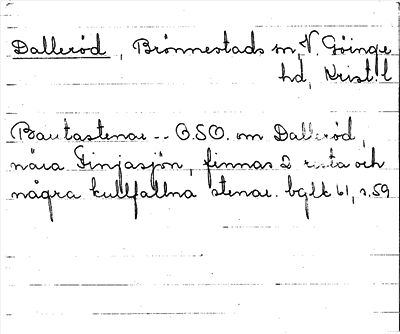 Dalleröd, Brönnestads sn, V. Göinge
hd, Krist. l
Bautastenar -- O.S.O. om Dalleröd,
nära Finjasjön, finnas 2 resta och
några kullfallna stenar. bglk 61, s. 59